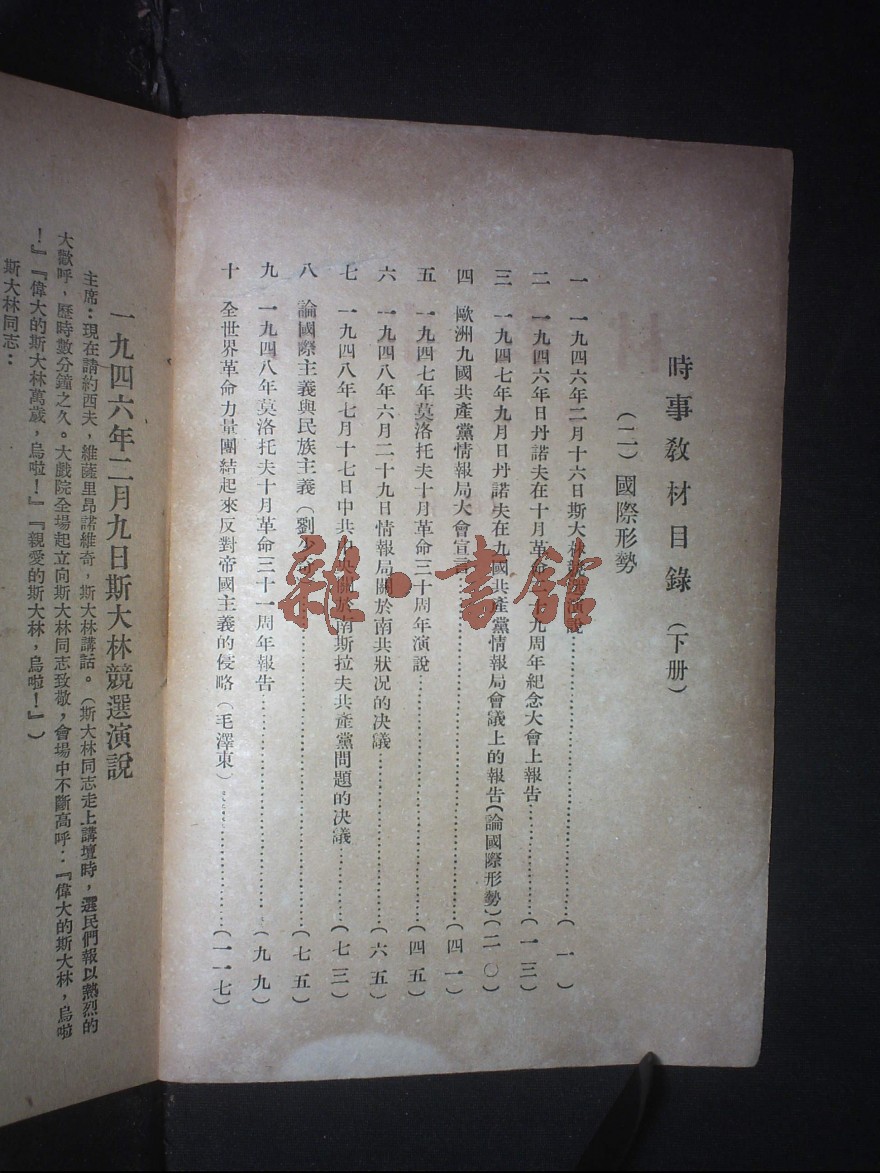 時事教材目錄(下册)
(二)國際形勢
一 一九四六年二月十六日斯大林競選演說……(一)
二 一九四六年日丹諾夫在十月革命二十九周年紀念大會上報告……(一三)
三 一九四七年九月日丹諾夫在九國共產黨情報局會議上的報告(論國際形勢)(二〇)
四 歐洲九國共產黨情報局大會宣言……(四一)
五 一九四七年莫洛托夫十月革命三十周年演說……(四五)
六 一九四八年六月二十九日情報局關於南共狀况的决議……(六五)
七 一九四八年七月十七日中共中央關於南斯拉夫共產黨問題的决議……(七三)
八 論國際主義與民族主義(劉少奇)……(七五)
九 一九四八年莫洛托夫十月革命三十一周年報告……(九九)
十 全世界革命力量團結起來反對帝國主義的侵略(毛澤東)……(一一七)
一九四六年二月九日斯大林競選演說
主席:現在請約西夫,維薩里昂諾維奇,斯大林講話。(斯大林同志走上講壇時,選民們報以熱烈的
大歡呼,歷時數分鐘之久。大戲院全場起立向斯大林同志致敬,會場中不斷高呼:『偉大的斯大林,烏啦
!』『偉大的斯大林萬歲,烏啦!』『親愛的斯大林,烏啦!』)
斯大林同志:
雜·書館